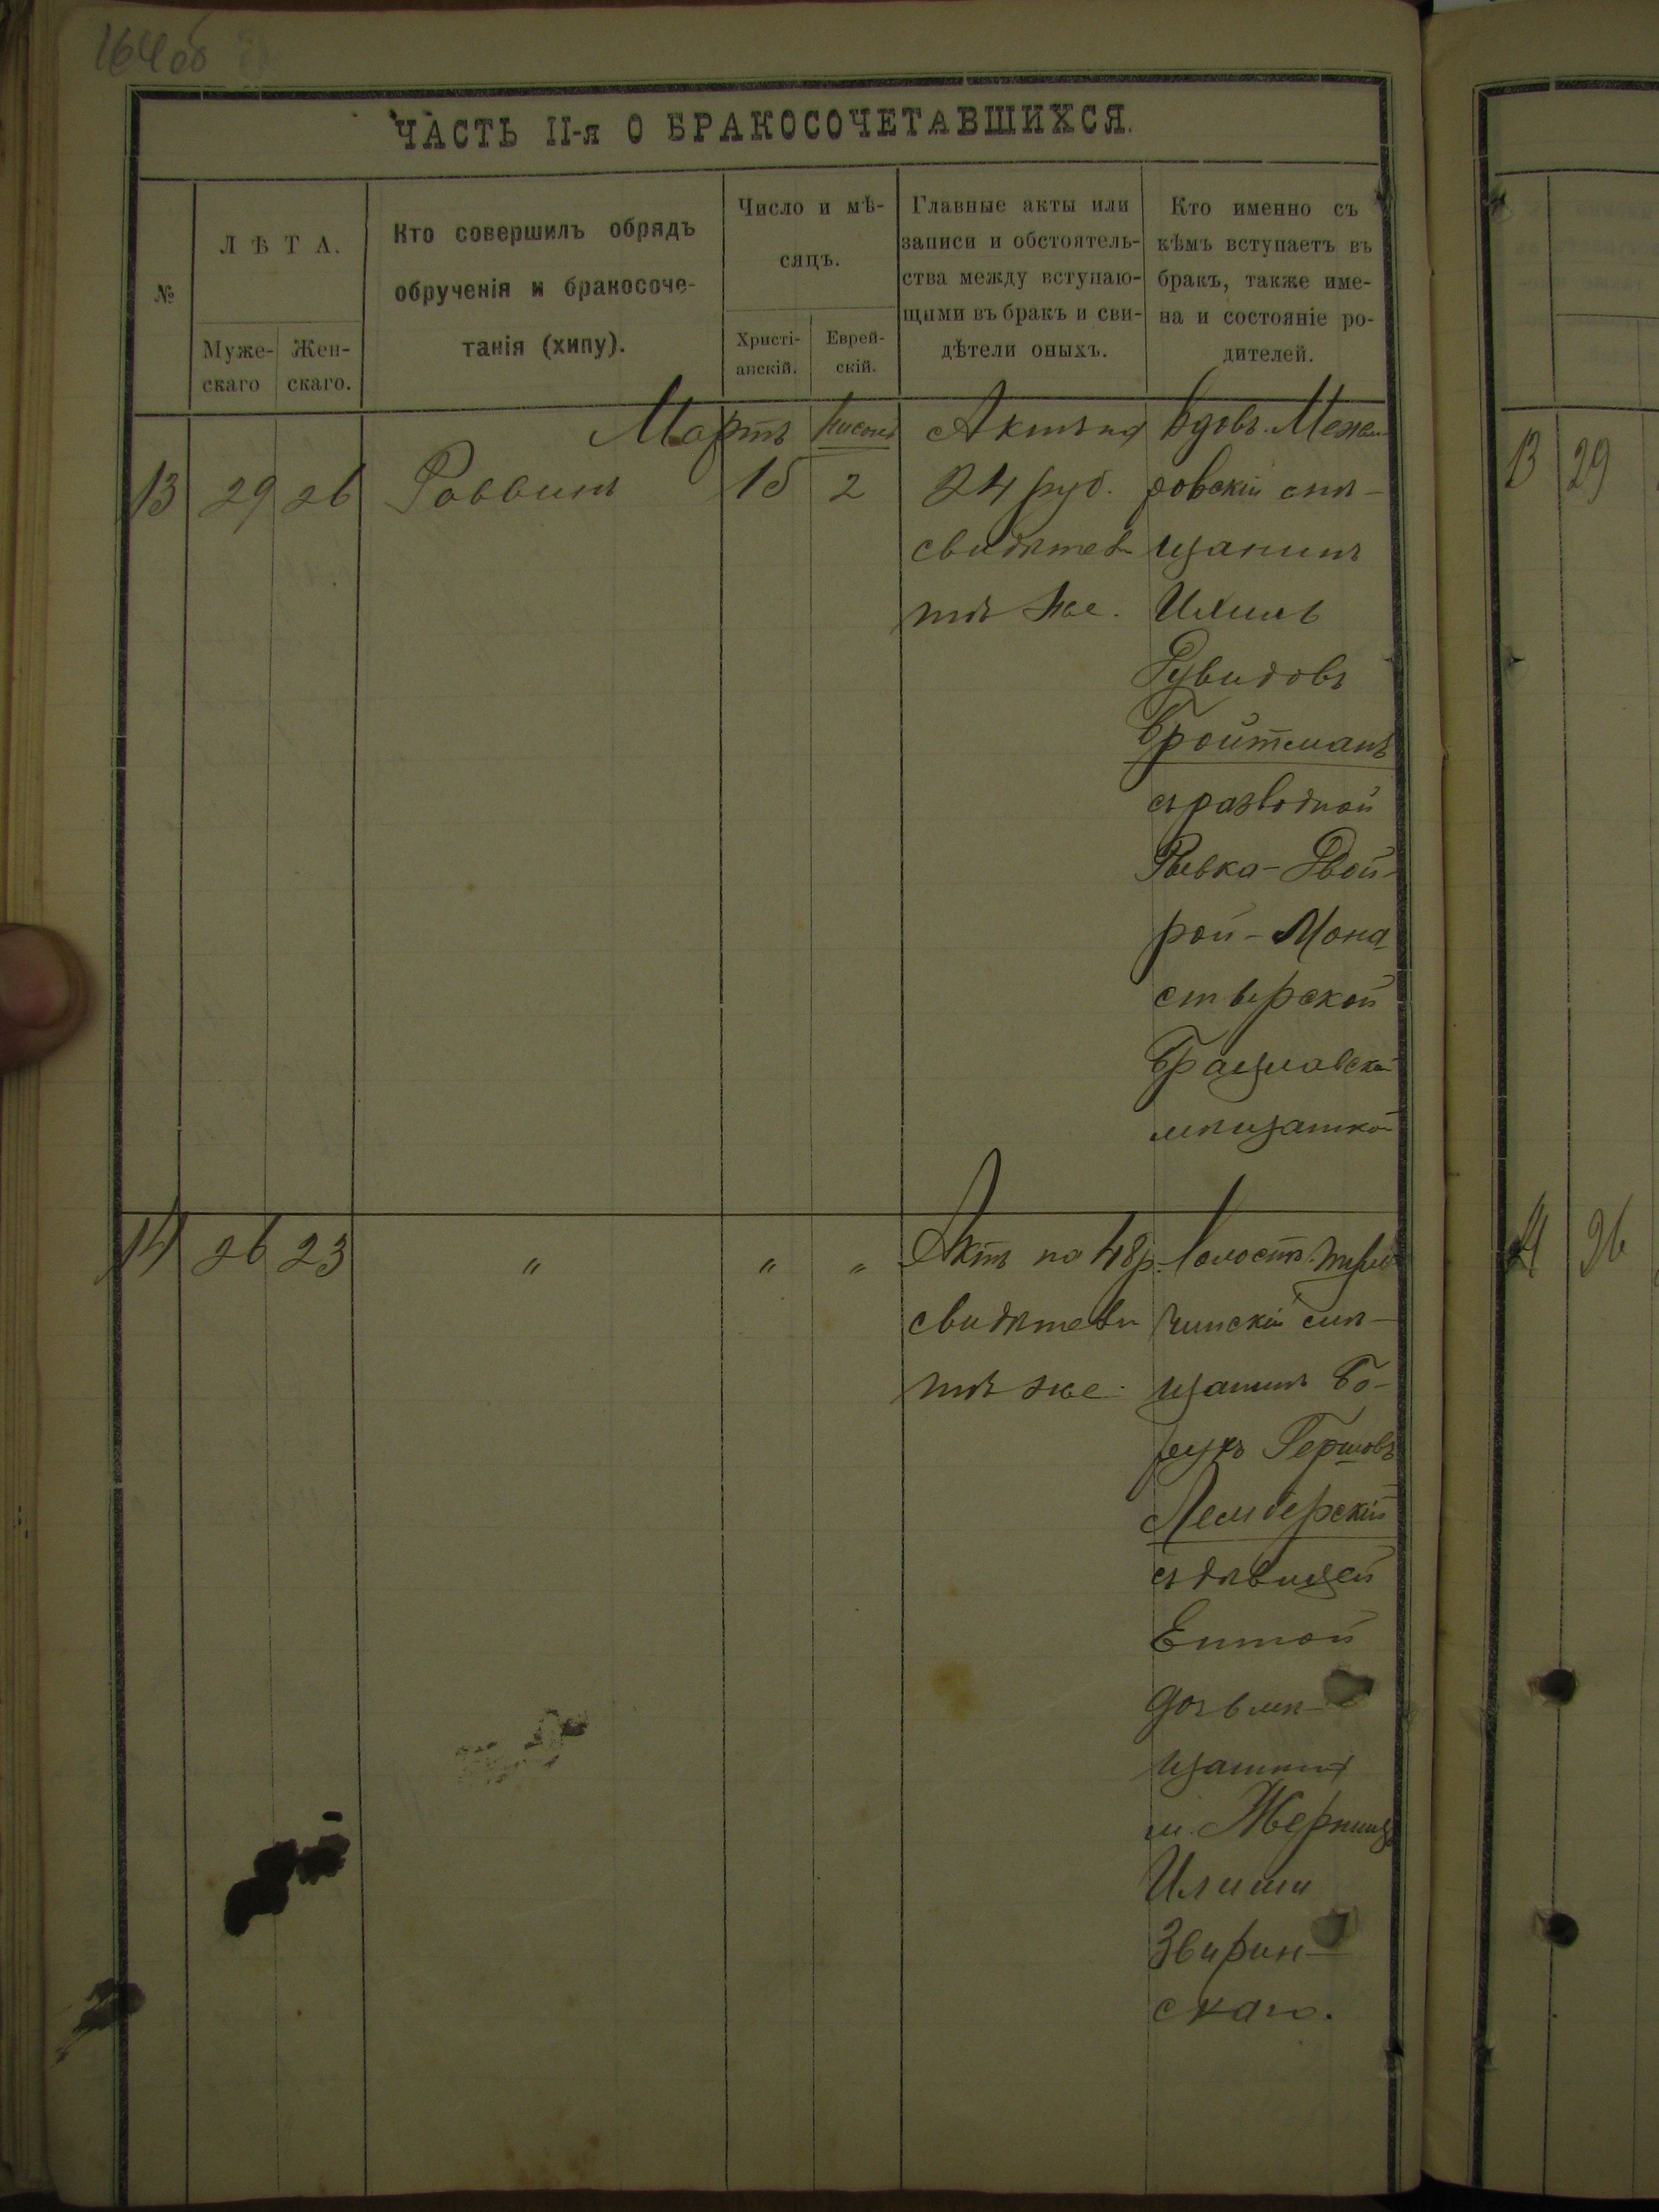 164об
ЧАСТЬ II-я О БРАКОСОЧЕТАВШИХСЯ.
№
ЛѢТА.
Муже-
скаго
Жен-
скаго.
Кто совершилъ обрядъ
обрученія и бракосоче-
танія (хипу).
Число и мѣ-
сяцъ.
Христі-
анскій.
Еврей-
скій.
Главные акты или
записи и обстоятель-
ства между вступаю-
щими въ бракъ и сви-
дѣтели оныхъ.
Кто именно съ
кѣмъ вступаетъ въ
бракъ, также име-
на и состояніе ро-
дителей.
Мартъ
13 29 26 Раввинъ 15 2
Актъ на
24 руб.
свидѣтели
тѣ же.
вдовъ. Межи-
ровскій мѣ-
щанинъ
Ихиль
Дувидовъ
Бройтманъ
съ разводной
Рывка-Двой-
рой-Мона
стырской
Брацлавской
мѣщанкой
14 26 23 " " "
Актъ на 48 р.
свидѣтели
тѣ же.
холостъ
чинскій мѣ-
щанинъ Бо-
рухъ Гершовъ
Лемберскій
съ дѣвицей
Ентой
дочь мѣ-
щанина
м. Жерницъ
Звирин-
скаго.
13 29
14 26